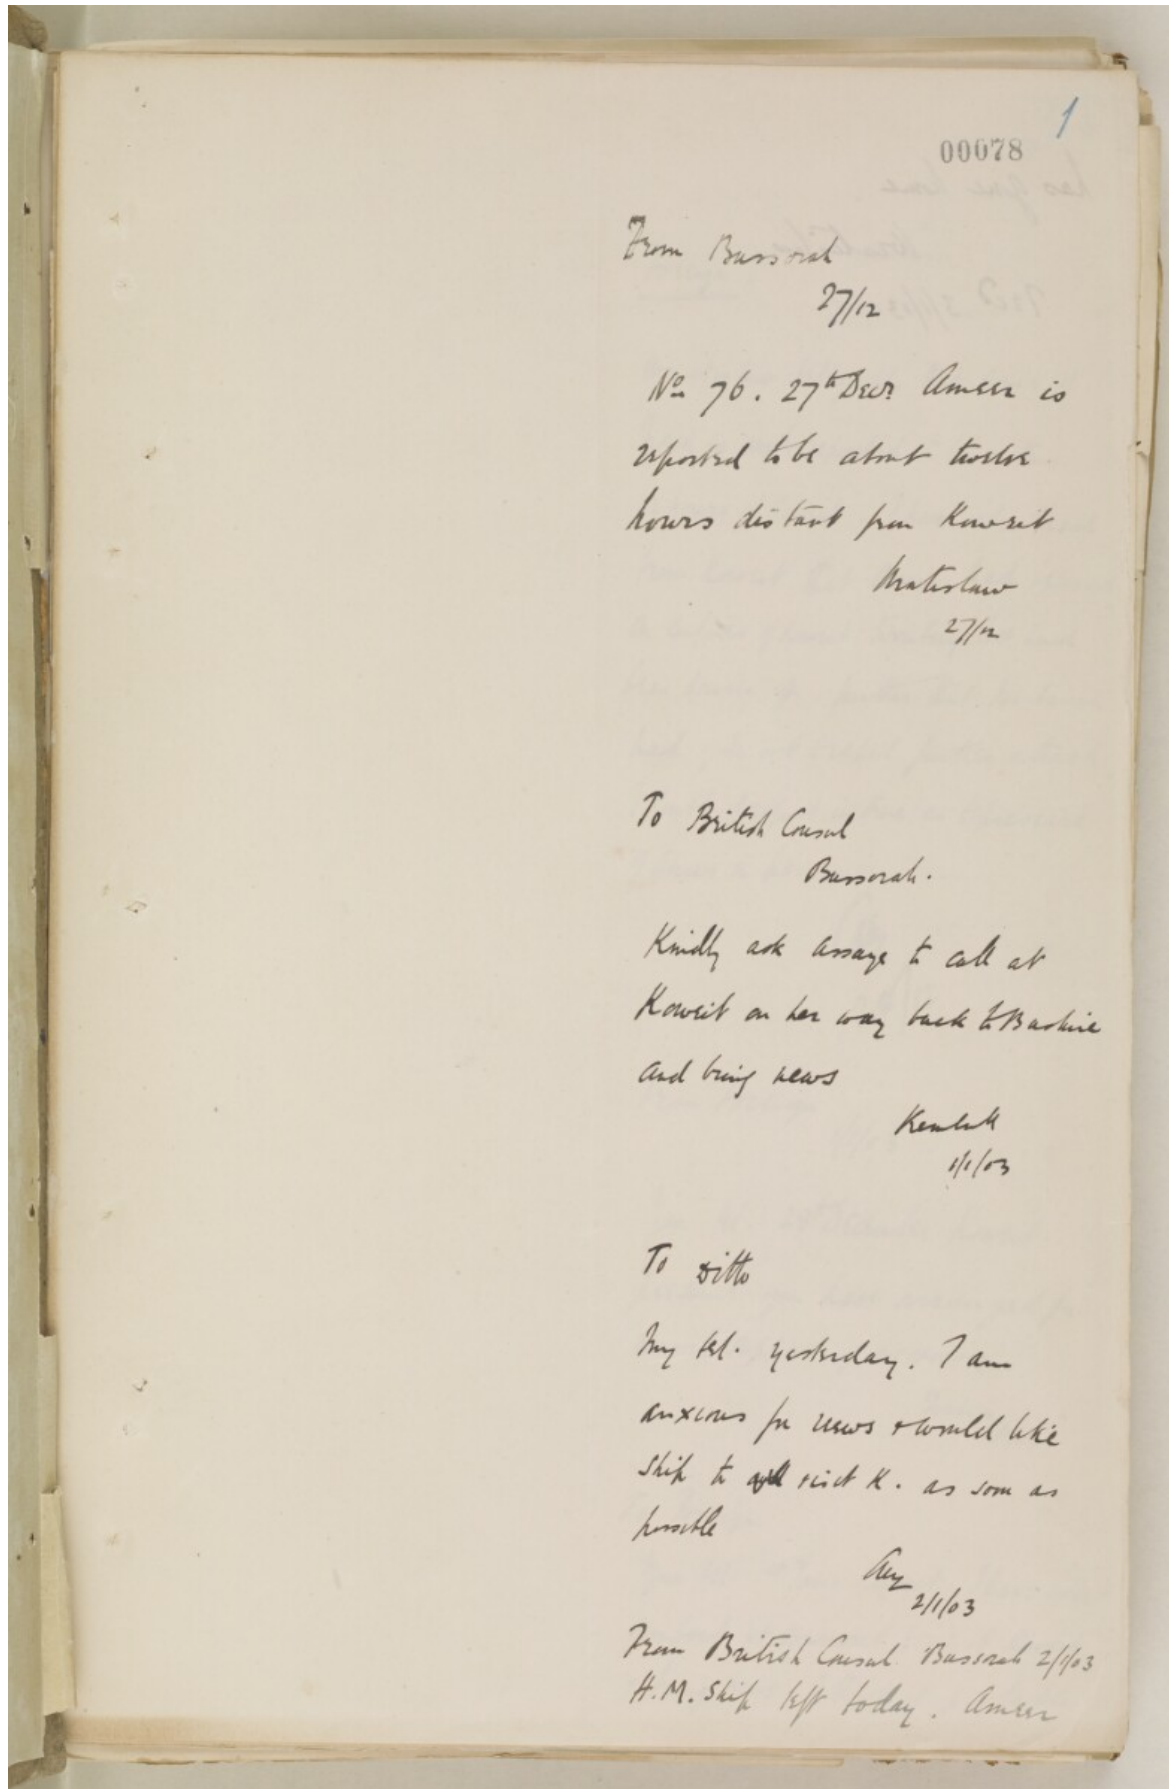 1
00078
From Bussorah
27/12
No 76. 27th Decr. Ameer is
reported to be about twelve
hours distant from Koweit
Wratislaw
27/12
To British Consul
Bussorah.
Kindly ask Assaye to call at
Koweit on her way back to Bushire
and bring news
Kemball
1/1/03
To Ditto
My tel. yesterday. I am
anxious for news & would like
ship to visit K. as soon as
possible
2/1/03
From British Consul Bussorah 2/1/03
H.M. Ship left today. Ameer